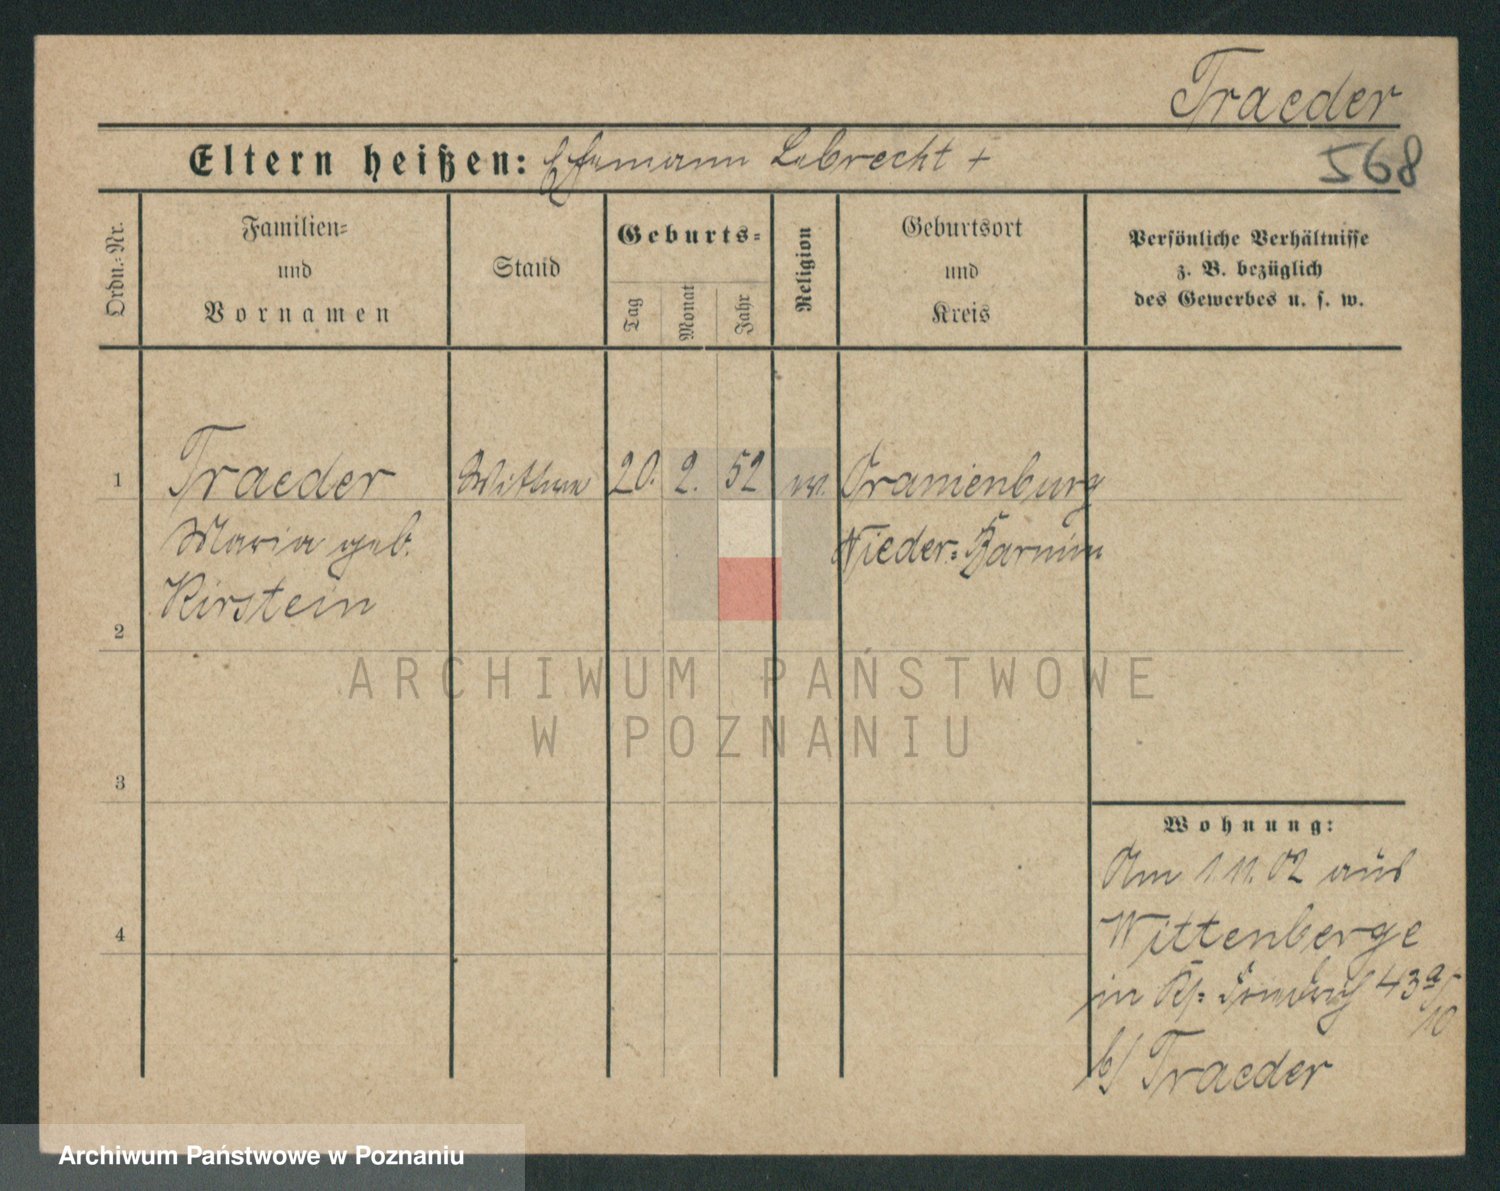 Traeder
568
Eltern heißen: Ehemann Lebrecht +
Ordn.-Nr.
Familien-
und
Vornamen
Stand
Geburts-
Tag
Monat
Jahr
Religion
Geburtsort
und
Kreis
Persönliche Verhältnisse
z. B. bezüglich
des Gewerbes u. s. w.
1 Traeder Witwe 20. 2. 52 ev. Oranienburg
Maria geb. Nieder-Barnim
Kirstein
2
3
4
ARCHIWUM PAŃSTWOWE
W POZNANIU
Wohnung:
Am 1.11.02 aus
Wittenberge
in 43a
10
b/ Traeder
Archiwum Państwowe w Poznaniu